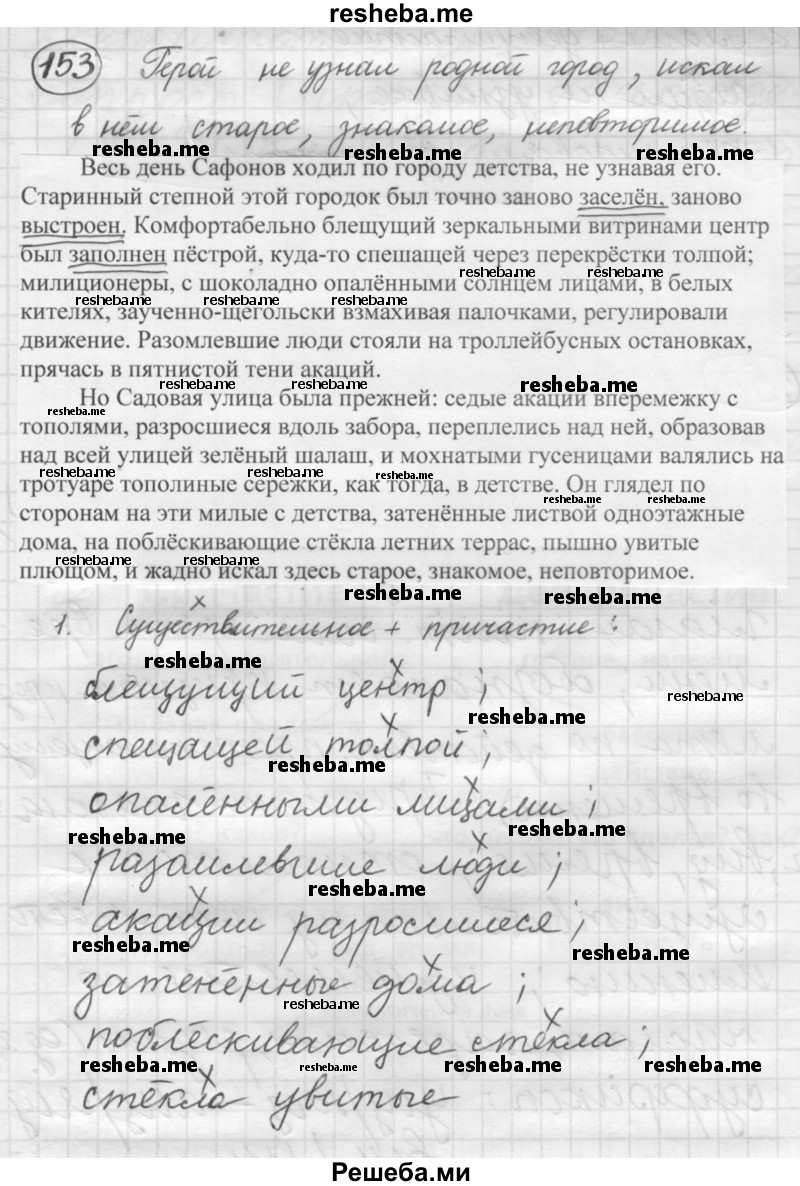 resheba.me
153 Герой не узнал родной город, искал
в нём старое, знакомое, неповторимое.
resheba.me resheba.me resheba.me
Весь день Сафонов ходил по городу детства, не узнавая его.
Старинный степной этой городок был точно заново заселён, заново
выстроен. Комфортабельно блещущий зеркальными витринами центр
был заполнен пёстрой, куда-то спешащей через перекрёстки толпой;
resheba.me resheba.me
милиционеры, с шоколадно опалёнными солнцем лицами, в белых
resheba.me resheba.me resheba.me resheba.me
кителях, заученно-щегольски взмахивая палочками, регулировали
движение. Разомлевшие люди стояли на троллейбусных остановках,
прячась в пятнистой тени акаций.
resheba.me resheba.me resheba.me
Но Садовая улица была прежней: седые акации вперемежку с
resheba.me
тополями, разросшиеся вдоль забора, переплелись над ней, образовав
над всей улицей зелёный шалаш, и мохнатыми гусеницами валялись на
resheba.me resheba.me resheba.me
тротуаре тополиные сережки, как тогда, в детстве. Он глядел по
resheba.me resheba.me
сторонам на эти милые с детства, затенённые листвой одноэтажные
дома, на поблёскивающие стёкла летних террас, пышно увитые
resheba.me resheba.me resheba.me
плющом, и жадно искал здесь старое, знакомое, неповторимое.
resheba.me resheba.me
1. Существительное + причастие:
resheba.me
блещущий центр;
resheba.me
resheba.me
спещащей толпой;
resheba.me
опалёнными лицами;
resheba.me resheba.me
разомлевшие люди;
resheba.me
акации разросшиеся;
resheba.me resheba.me
затенённые дома;
resheba.me
поблёскивающие стёкла;
resheba.me resheba.me resheba.me resheba.me
стёкла увитые
Решеба.ми